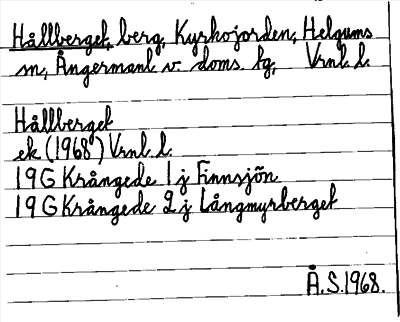 Hållberget, berg, Kyrkojorden, Helgums
sn, Ångermanl. v. doms. tg, Vrnl. l.
Hållberget
ek (1968) Vrnl. l.
19G Krångede 1 j Finnsjön
19G Krångede 2 j Långmyrberget
Å.S.1968.